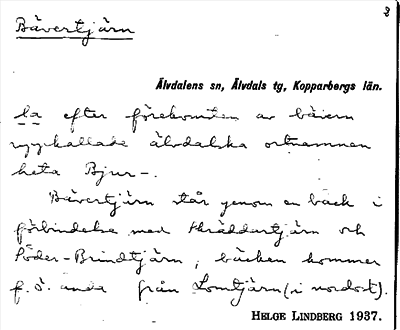 3
Bävertjärn
Älvdalens sn, Älvdals tg, Kopparbergs län.
efter förekomsten av bävern
älvdalska ortnamnen
heta Bjur-.
Bävertjärn står genom en bäck i
förbindelse med Skräddartjärn och
Söder-Brindtjärn, bäcken kommer
f. ö. ända från Lomtjärn (i nordost).
HELGE LINDBERG 1937.